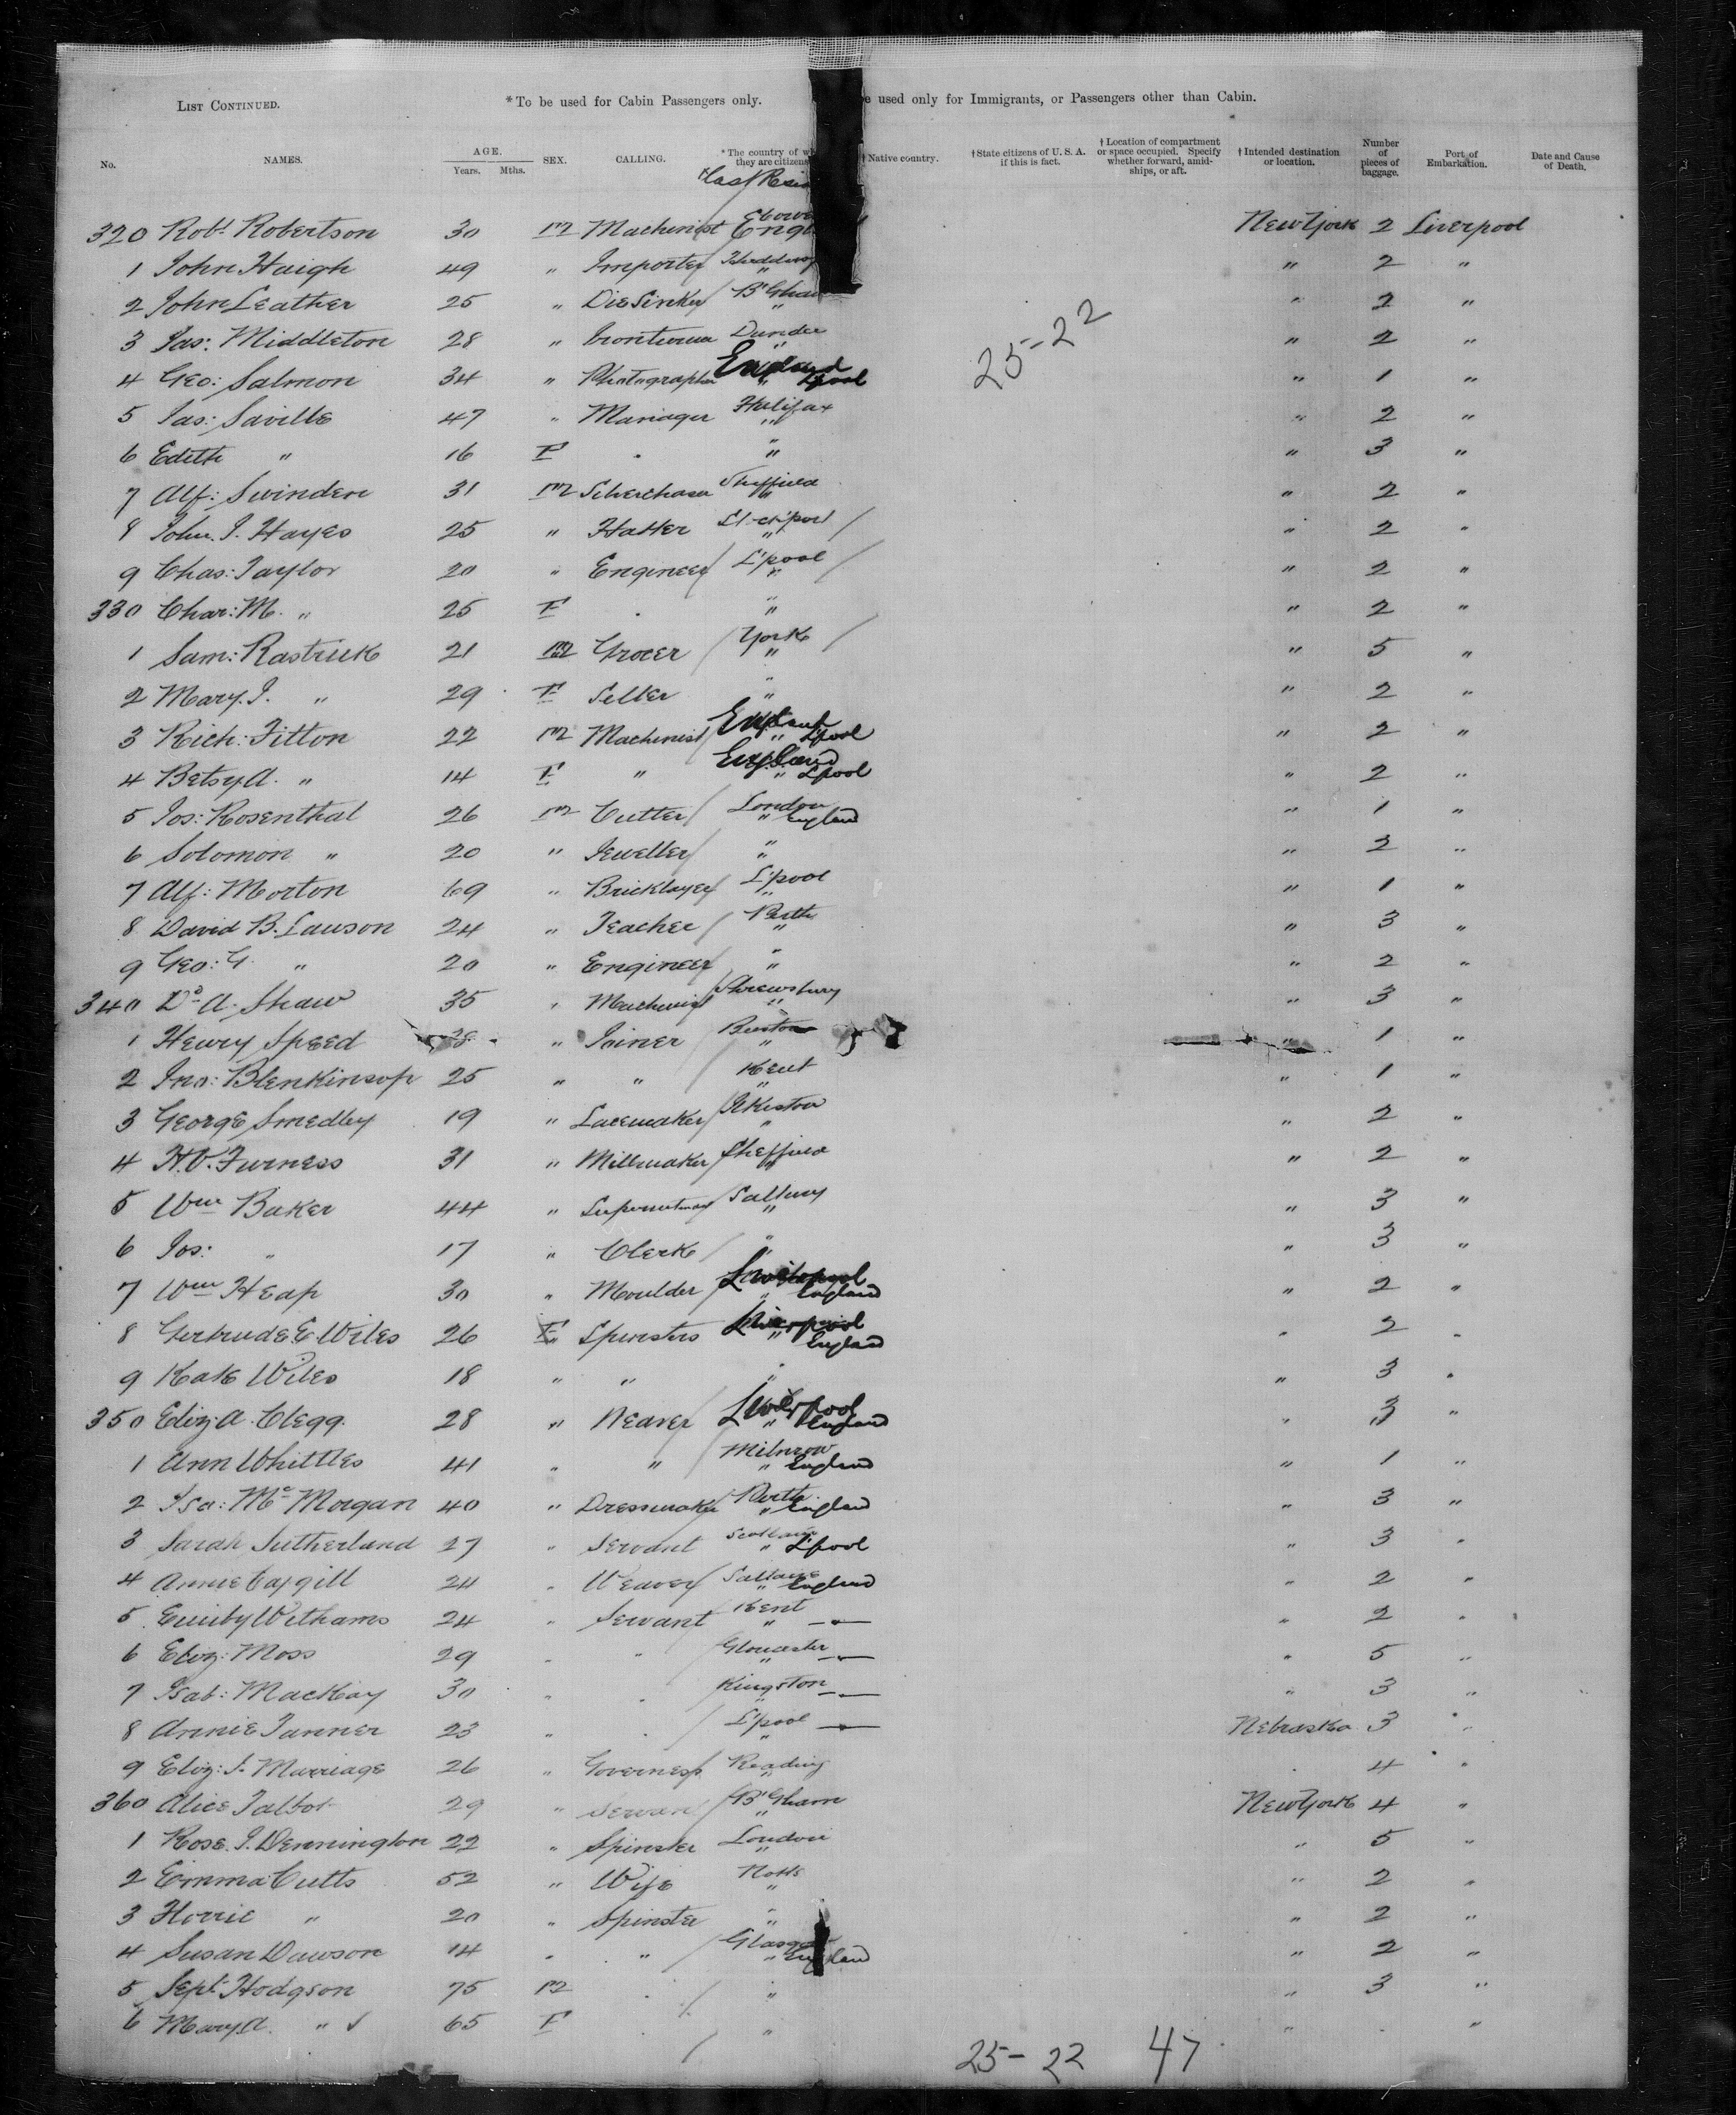 LIST CONTINUED. *To be used for Cabin Passengers only. e used only for Immigrants, or Passengers other than Cabin.
No. NAMES. AGE. Years. Mths. SEX. CALLING. *The country of wh they are citizens †Native country. †State citizens of U. S. A. if this is fact. †Location of compartment or space occupied. Specify whether forward, amid-ships, or aft. †Intended destination or location. Number of pieces of baggage. Port of Embarkation. Date and Cause of Death.
Last Resi
320 Robt Robertson 30 M Machinist Engl New York 2 Liverpool
1 John Haigh 49 " Importer " " 2 "
2 John Leather 25 " Die Sinker B'Gham " " 2 "
3 Jas: Middleton 28 " Dundee " " 2 "
25-22
4 Geo: Salmon 34 " Photographer England " L'pool " 1 "
5 Jas: Saville 47 " Manager Halifax " " 2 "
6 Edith " 16 F " " " 3 "
7 Alf: Swinden 31 M Silverchaser Sheffield " " 2 "
8 John. J. Hayes 25 " Hatter St-ckport " " 2 "
9 Chas: Taylor 20 " Engineer L'pool " " 2 "
330 Char: M. " 25 F " " " 2 "
1 Sam: Rastrick 21 M Grocer York " " 5 "
2 Mary. J. " 29 F Seller " " " 2 "
3 Rich: Fitton 22 M Machinist England " L'pool " 2 "
4 Betsy A. " 14 F " England " L'pool " 2 "
5 Jos: Rosenthal 26 M Cutter London " England " 1 "
6 Solomon " 20 " Jeweller " " " 2 "
7 Alf: Morton 69 " Bricklayer L'pool " " 1 "
8 David B. Lawson 24 " Teacher Perth " " 3 "
9 Geo: G. " 20 " Engineer " " " 2 "
340 Do A. Shaw 35 " Machinist Shrewsbury " " 3 "
1 Henry Speed 28 " Joiner Burton " " 1 "
2 Jno: Blenkinsop 25 " " Kent " " 1 "
3 George Smedley 19 " Lacemaker Ilkeston " " 2 "
4 H.V. Furness 31 " Millmaker Sheffield " " 2 "
5 Wm Baker 44 " Saltney " " 3 "
6 Jos: " 17 " Clerk " " 3 "
7 Wm Heap 30 " Moulder Liverpool " England " 2 "
8 Gertrude E Wiles 26 F Spinsters Liverpool " England " 2 "
9 Kate Wiles 18 " " " " 3 "
350 Eliz A. Clegg. 28 " Weaver Liverpool " England " 3 "
1 Ann Whittles 41 " " Milnrow " England " 1 "
2 Isa: Mc Morgan 40 " Dressmaker Perth " England " 3 "
3 Sarah Sutherland 27 " Servant Scotland " L'pool " 3 "
4 Annie Cargill 24 " Weaver Saltaire " England " 2 "
5 Emily Withams 24 " Servant Kent " — " — " 2 "
6 Eliz: Moss 29 " " Gloucester " — " — " 5 "
7 Isab: MacKay 30 " " Kingston " — " — " 3 "
8 Annie Tanner 23 " " L'pool " — " — Nebraska 3 "
9 Eliz: J. Marriage 26 " Governess Reading " " 4 "
360 Alice Talbot 29 " Servant B'Gham " New York 4 "
1 Rose. J. Dennington 22 " Spinster London " " 5 "
2 Emma Cutts 52 " Wife Notts " " 2 "
3 Florrie " 20 " Spinster " " " 2 "
4 Susan Dawson 14 " " Glasgow " England " 2 "
5 Sept: Hodgson 75 M " " " 3 "
6 Mary A. " 65 F " " "
25-22 47